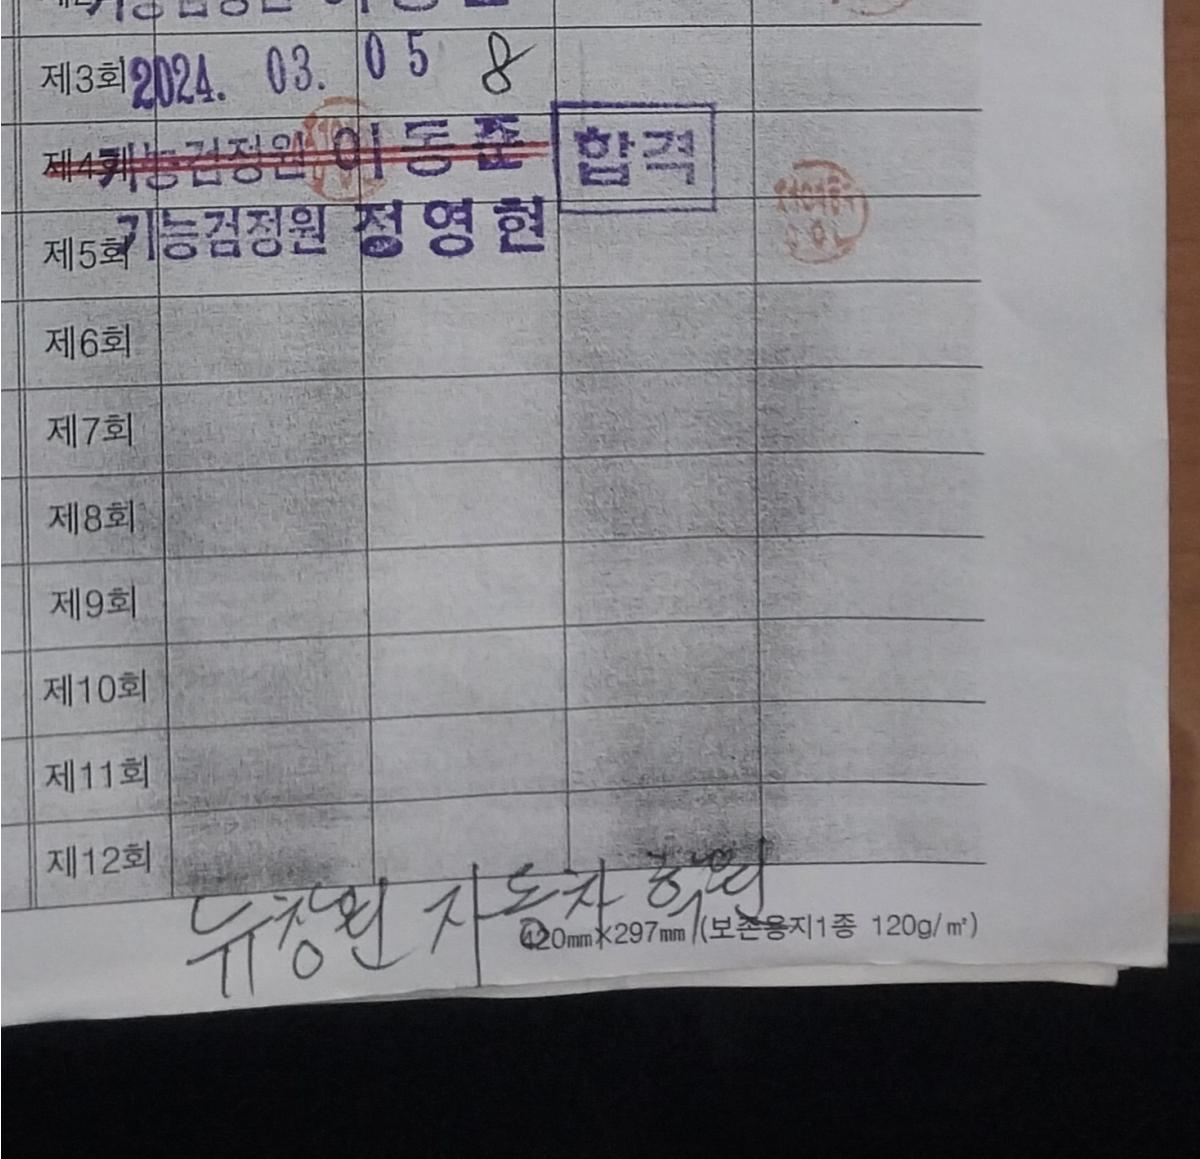 제3회 2024. 03. 05 8
제4회 기능검정원 이동준 합격
제5회 기능검정원 정영현
제6회
제7회
제8회
제9회
제10회
제11회
제12회
뉴창원 자동차 학원
420㎜×297㎜ (보존용지1종 120g/㎡)